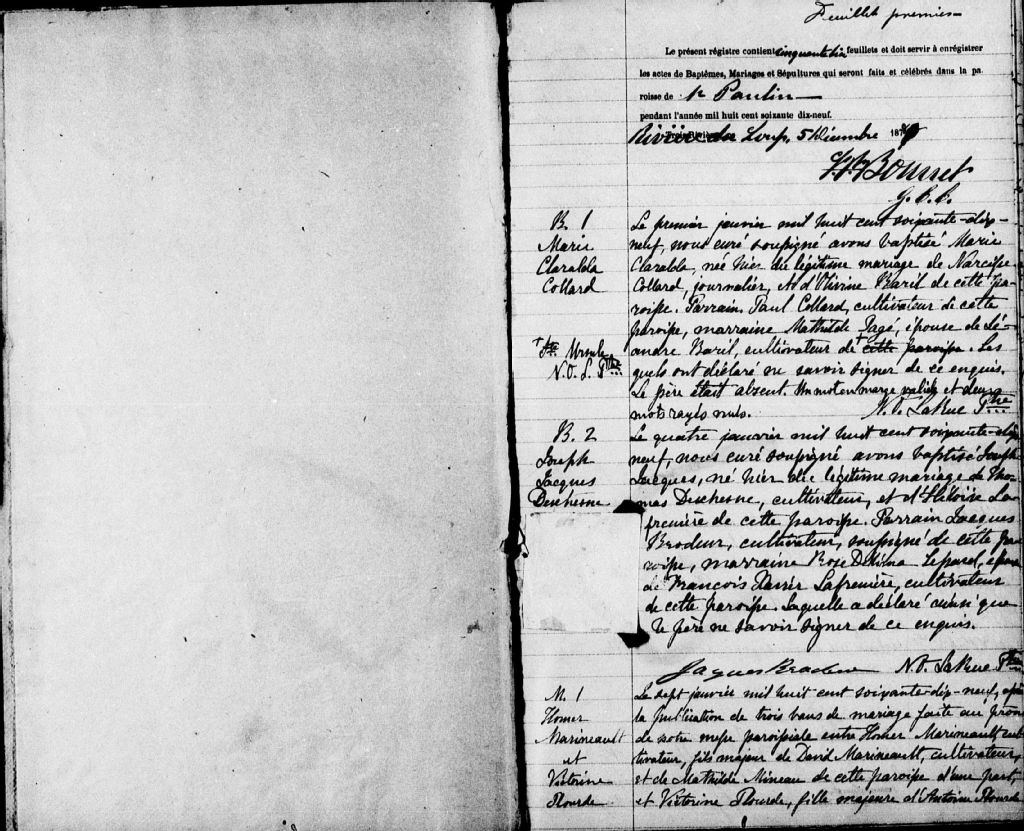 Feuillet premier
Le présent régistre contient cinquante dix feuillets et doit servir à enrégistrer
les actes de Baptêmes, Mariages et Sépultures qui seront faits et célébrés dans la pa
roisse de St Paulin
pendant l'année mil huit cent soixante dix-neuf.
Rivière du Loup, 5 Décembre 187
G. C. C.
B. 1
Marie
Claralda
Collard
Le premier janvier mil huit cent soixante-dix-
neuf, nous curé soussigné avons baptisé Marie
Claralda, née hier du légitime mariage de Narcisse
Collard, journalier, et d'Olivine Baril de cette pa-
roisse. Parrain Paul Collard, cultivateur de cette
paroisse, marraine Mathilde Pagé, épouse de Lé-
andre Baril, cultivateur de + cette paroisse. Les
quels ont déclaré ne savoir signer de ce enquis.
Le père était absent. Un mot en marge valide et deux
mots rayés nuls. N. O. LaRue Ptre
+ Ste Ursule
N. O. L. Ptre
B. 2
Joseph
Jacques
Duchesne
Le quatre janvier mil huit cent soixante-dix
neuf, nous curé soussigné avons baptisé Joseph
Jacques, né hier du légitime mariage de Tho-
mas Duchesne, cultivateur, et d'Héloise La-
frenière de cette paroisse. Parrain Jacques
Brodeur, cultivateur, soussigné de cette pa
roisse, marraine Rose Délima Lupard, épouse
de François Xavier Lafrenière, cultivateur
de cette paroisse. Laquelle a déclaré ainsi que
le père ne savoir signer de ce enquis.
Jacques Brodeur N. O. LaRue Ptre
M. 1
Homer
Marineault
et
Victorine
Plourde
Le sept janvier mil huit cent soixante-dix-neuf, après
la publication de trois bans de mariage faite au prône
de notre messe paroissiale entre Homer Marineault cul
tivateur, fils majeur de David Marineault, cultivateur,
et de Mathilde Mineau de cette paroisse d'une part,
et Victorine Plourde, fille majeure d'Antoine Plourde